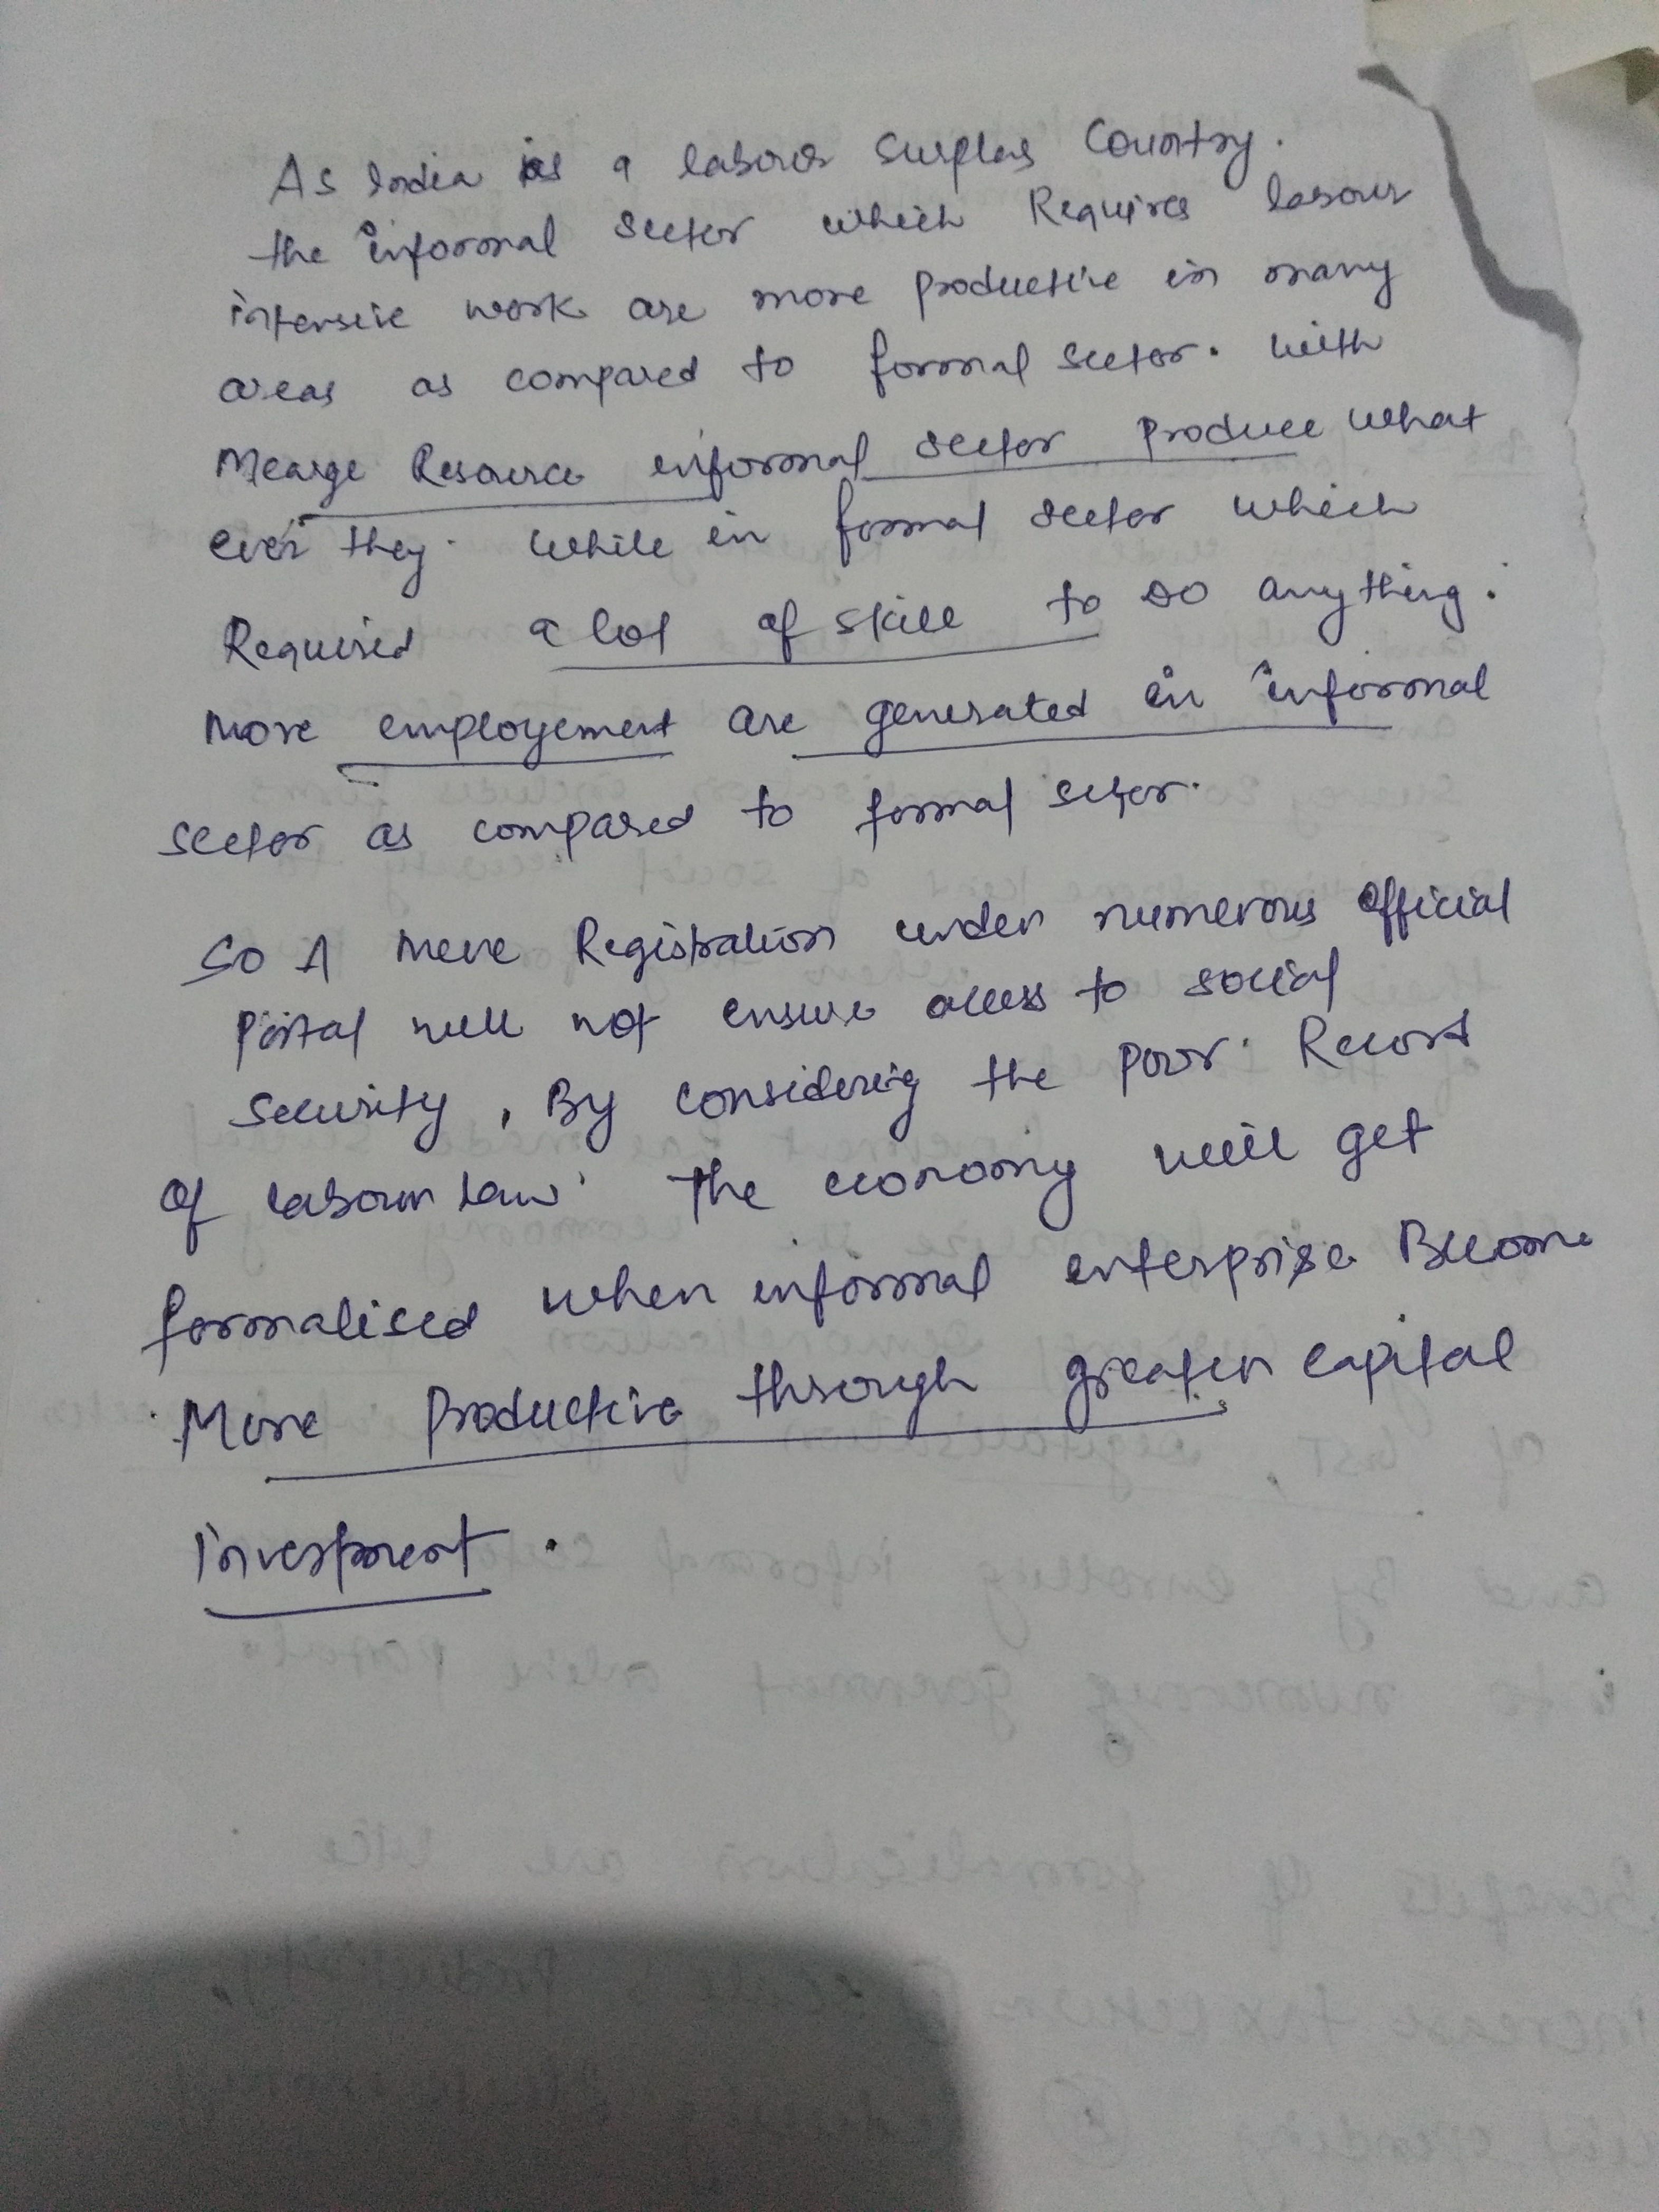 As India is a labour surplus Country.
the informal sector which Requires labour
intensive work are more productive in many
areas as compared to formal sector. with
Mearge Resource informal sector produce what
ever they. while in formal sector which
Required a lot of skill to DO anything.
More employement are generated in informal
sector as compared to formal sector.
SO A mere Registration under numerous official
Portal will not ensure access to social
security, By considering the poor Record
of labour law. The economy will get
formalised when informal enterprise Become
More Productive through greater capital
Investment.